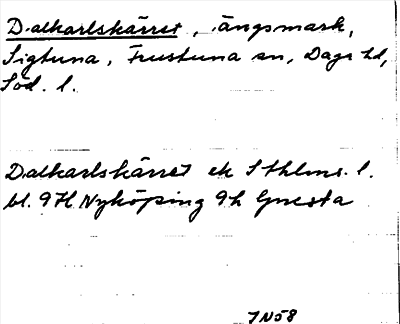 Dalkarlskärret, ängsmark,
Sigtuna, Frustuna sn, Daga hd,
Söd. l.
Dalkarlskärret ek Sthlms. l.
bl. 9H Nyköping 9h Gnesta
JN58